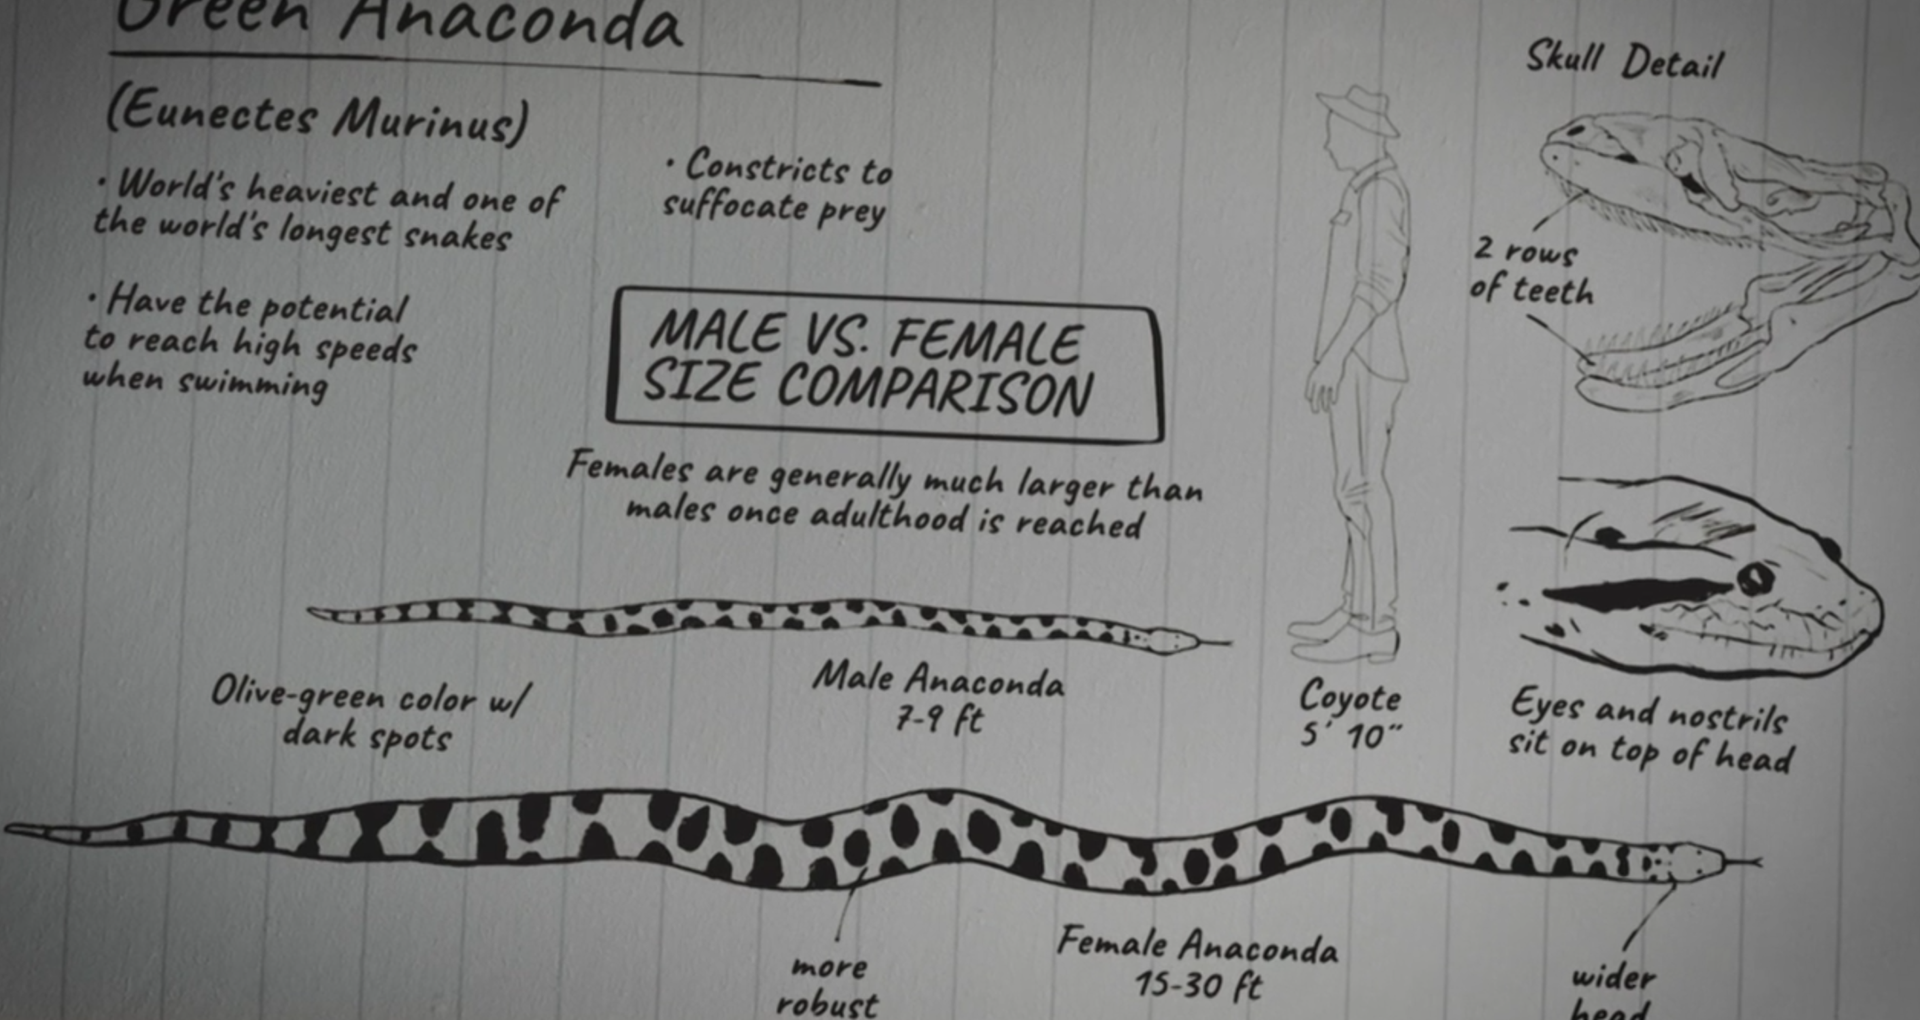 Green Anaconda
(Eunectes Murinus)
· World's heaviest and one of
the world's longest snakes
· Have the potential
to reach high speeds
when swimming
· Constricts to
suffocate prey
MALE VS. FEMALE
SIZE COMPARISON
Females are generally much larger than
males once adulthood is reached
Skull Detail
2 rows
of teeth
Eyes and nostrils
sit on top of head
Coyote
5' 10"
Male Anaconda
7-9 ft
Olive-green color w/
dark spots
more
robust
Female Anaconda
15-30 ft
wider
head